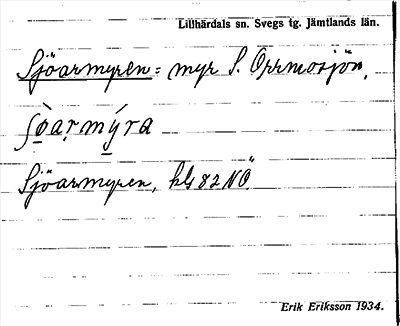 Lillhärdals sn. Svegs tg. Jämtlands län.
Sjöarmyren = myr S. Orrmosjön.
ʃò̱aṛmý̱ra
Sjöarmyren, kbl 82 NÖ.
Erik Eriksson 1934.